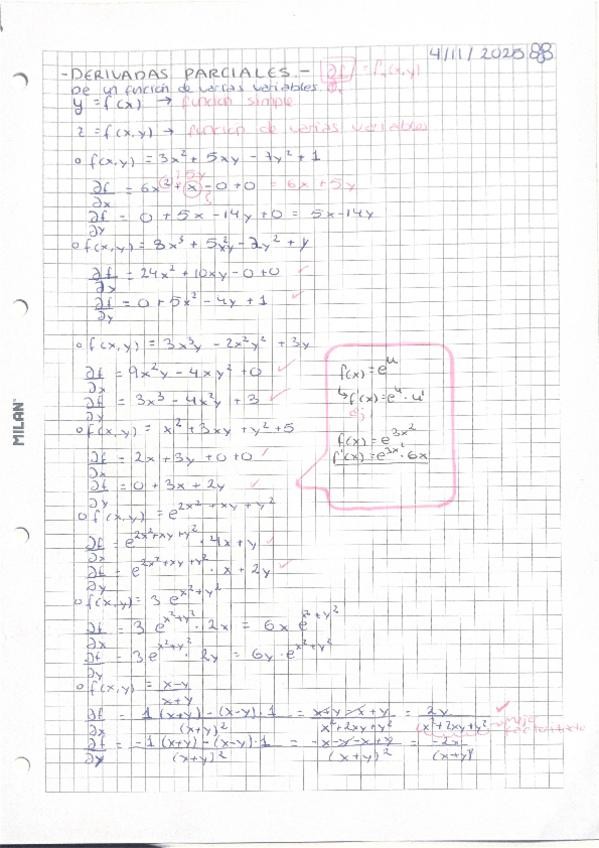 4/11/2025
-DERIVADAS PARCIALES.- ∂f = f (x,y)
De un función de varias variables.
y = f(x) → función simple
z = f(x,y) → función de varias variables
o f(x,y) = 3x² + 5xy - 7y² + 1
5y
∂f/∂x = 6x + x - 0 + 0 = 6x + 5y
∂f/∂y = 0 + 5x - 14y + 0 = 5x - 14y
o f(x,y) = 8x³ + 5x²y - 2y² + y
∂f/∂x = 24x² + 10xy - 0 + 0 ✓
∂f/∂y = 0 + 5x² - 4y + 1 ✓
o f(x,y) = 3x³y - 2x²y² + 3y
∂f/∂x = 9x²y - 4xy² + 0 ✓
∂f/∂y = 3x³ - 4x²y + 3 ✓
o f(x,y) = x² + 3xy + y² + 5
∂f/∂x = 2x + 3y + 0 + 0 ✓
∂f/∂y = 0 + 3x + 2y ✓
f(x) = e^u
↳ f'(x) = e^u · u'
ej:
f(x) = e^(3x²)
f'(x) = e^(3x²) · 6x
o f(x,y) = e^(2x²+xy+y²)
∂f/∂x = e^(2x²+xy+y²) · 4x + y ✓
∂f/∂y = e^(2x²+xy+y²) · x + 2y ✓
o f(x,y) = 3 e^(x²+y²)
∂f/∂x = 3 e^(x²+y²) · 2x = 6x e^(x²+y²)
∂f/∂y = 3e^(x²+y²) · 2y = 6y · e^(x²+y²)
o f(x,y) = (x-y)/(x+y)
∂f/∂x = (1(x+y) - (x-y)·1)/(x+y)² = (x+y-x+y)/(x²+2xy+y²) = 2y/(x²+2xy+y²) ✓
mejor
∂f/∂y = (-1(x+y) - (x-y)·1)/(x+y)² = (-x-y-x+y)/(x+y)² = -2x/(x+y)²
MILAN